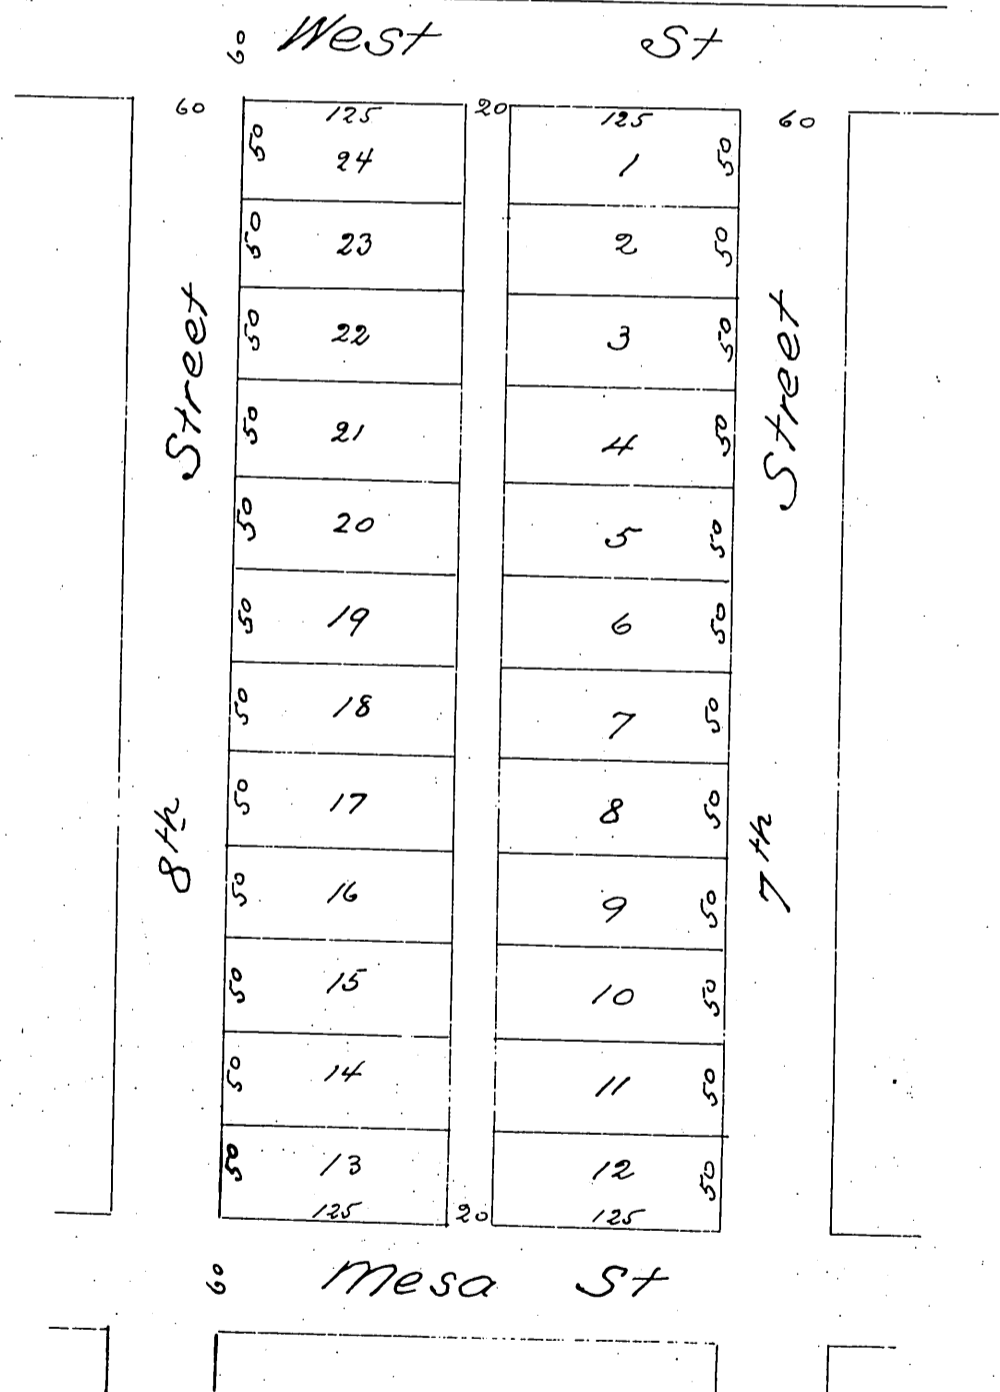 60 West St
60 125 20 125 60
50 24 1 50
50 23 2 50
50 22 3 50
50 21 4 50
50 20 5 50
50 19 6 50
50 18 7 50
50 17 8 50
50 16 9 50
50 15 10 50
50 14 11 50
50 13 12 50
125 20 125
8th Street
7th Street
60 Mesa St